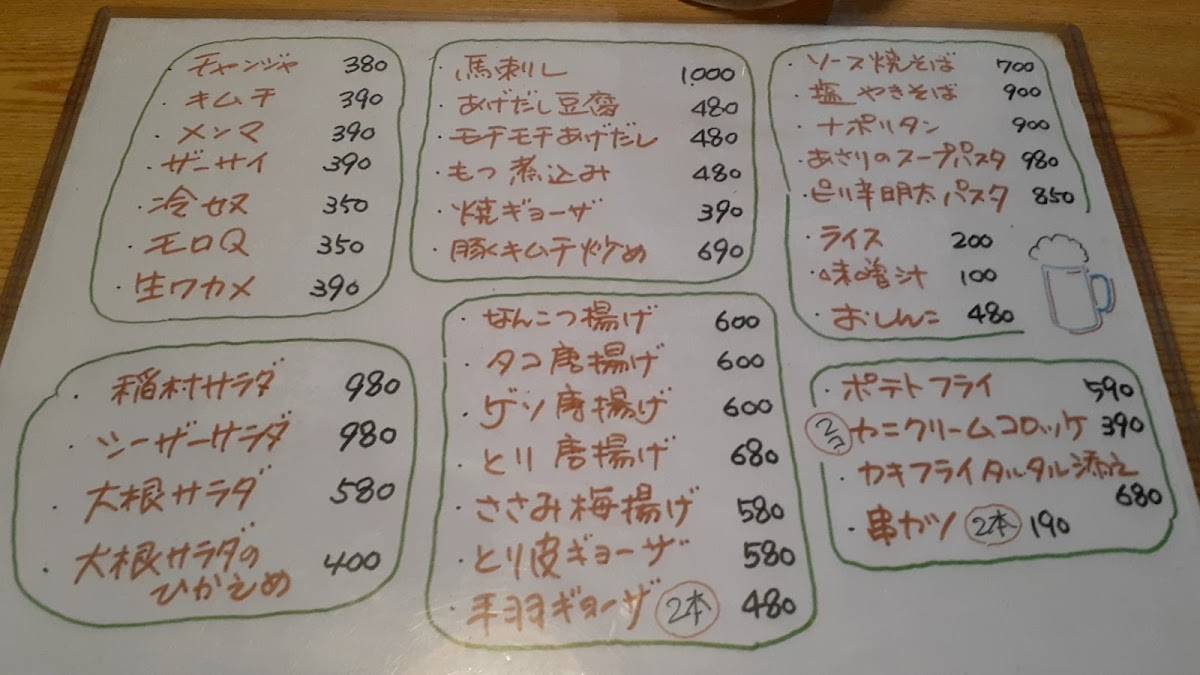 ・チャンジャ 380
・キムチ 390
・メンマ 390
・ザーサイ 390
・冷セヌ 350
・モロQ 350
・生ワカメ 390
・稲村サラダ 980
・シーザーサラダ 980
・大根サラダ 580
・大根サラダの
ひかえめ 400
・馬刺し 1.000
・あげだし豆腐 480
・モチモチあげだし 480
・もつ煮込み 480
・焼ギョーザ 390
・豚キムチ炒め 690
・なんこつ揚げ 600
・タコ唐揚げ 600
・ゲソ唐揚げ 600
・とり唐揚げ 680
・ささみ梅揚げ 580
・とり皮ギョーザ 580
・手羽ギョーザ 2本 480
・ソース焼そば 700
・塩やきそば 900
・ナポリタン 900
・あさりのスープパスタ 980
・ピリ辛明太パスタ 850
・ライス 200
・味噌汁 100
・おしんこ 480
・ポテトフライ 590
2コ カニクリームコロッケ 390
カキフライタルタル添え
680
・串カツ 2本 190